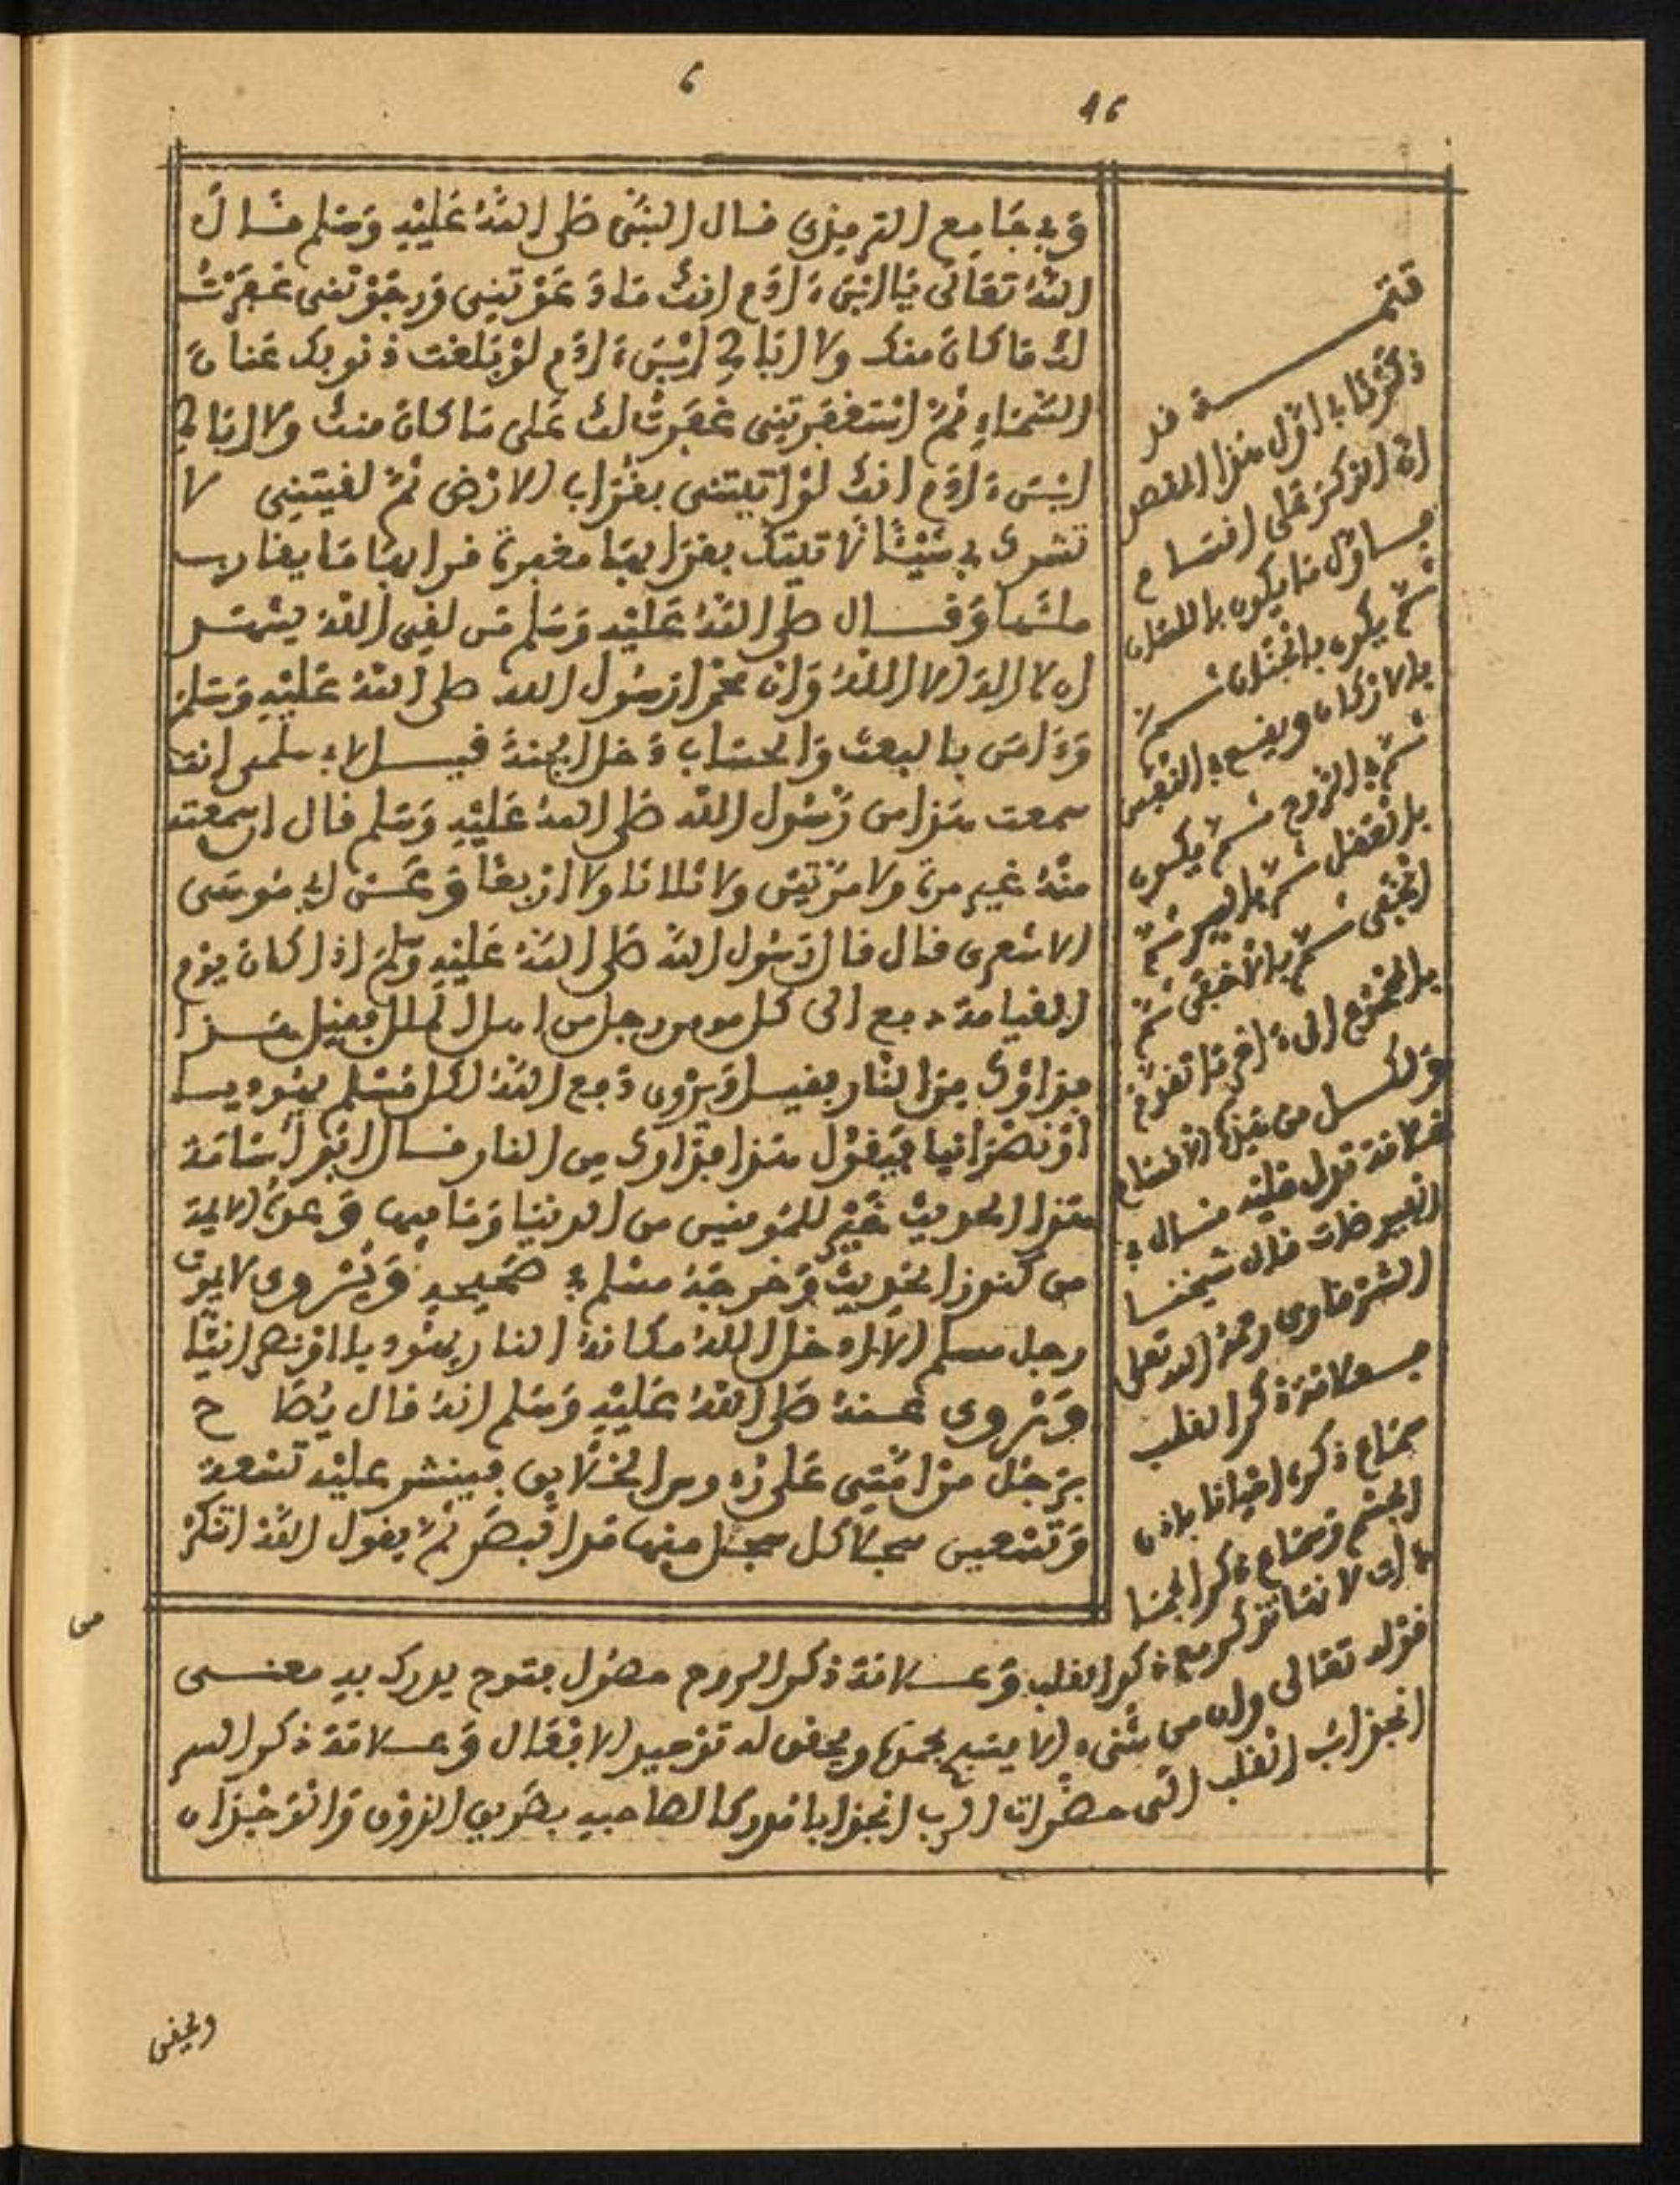 6
16
وفي جامع الترمذي قال النبي صلى الله عليه وسلم قال
الله تعالى يا ابن ءادم انك ما دعوتني ورجوتني غفرت
لك ما كان منك ولا ابالي ابن ءادم لو بلغت ذنوبك عنان
السماء ثم استغفرتني غفرت لك على ما كان منك ولا ابالي
ابن ءادم انك لو اتيتني بقراب الارض ثم لقيتني لا
تشرك بي شيئا لاتيتك بقرابها مغفرة قرابها ما يقارب
ملئها وقال صلى الله عليه وسلم من لقي الله يشهد
ان لا اله الا الله وان محمدا رسول الله صلى الله عليه وسلم
وءامن بالبعث والحساب دخل الجنة قيل لابي سلمى انت
سمعت هذا من رسول الله صلى الله عليه وسلم قال اي سمعته
منه غير مرة ولا مرتين ولا ثلاثا ولا اربعا وعن ابي موسى
الاشعري قال قال رسول الله صلى الله عليه وسلم اذا كان يوم
القيامة دفع الى كل مومن رجل من اهل الملل فقيل هذا
فداؤك من النار فقيل ويروى دفع الله لكل مسلم يهوديا
او نصرانيا فيقول هذا فداؤك من النار قال ابو اسامة
هذا الحديث خير للمومنين من الدنيا وما فيها وعده الايمة
من كنوز الحديث وخرجه مسلم في صحيحه ويروى لا يموت
رجل مسلم الا ادخل الله مكانه النار يهوديا او نصرانيا
ويروى عنه صلى الله عليه وسلم انه قال يصاح
برجل من امتي على رءوس الخلايق فينشر عليه تسعة
وتسعين سجلا كل سجل منها مد البصر ثم يقول الله اتنكر
من
تتمة قد
ذكرنا في اول هذا الفصل
ان الذكر على اقسام
اول ما يكون باللسان
ثم يكون بالجنان ثم
بالاركان ويقع في النفس
ثم في الروح ثم يكون
بالعقل ثم بالسر ثم
الخفي ثم بالاخفى ثم
الى ءاخر ما تقدم
ولكل من هذه الاقسام
علامة تدل عليه قال في
قال شيخنا
الشرقاوي رحمه الله تعالى
علامة ذكر القلب
سماع ذكره احيانا باذن
الجسم وسماع ذكر الجما
دات لانها تذكر مع ذكر القلب وعلامة ذكر الروح حصول فتوح يدرك به معنى
قوله تعالى وان من شيء الا يسبح بحمده ويحقق له توحيد الافعال وعلامة ذكر السر
انجذاب القلب الى حضرات الرب انجذابا مدركا لصاحبه بطريق الذوق والوجدان